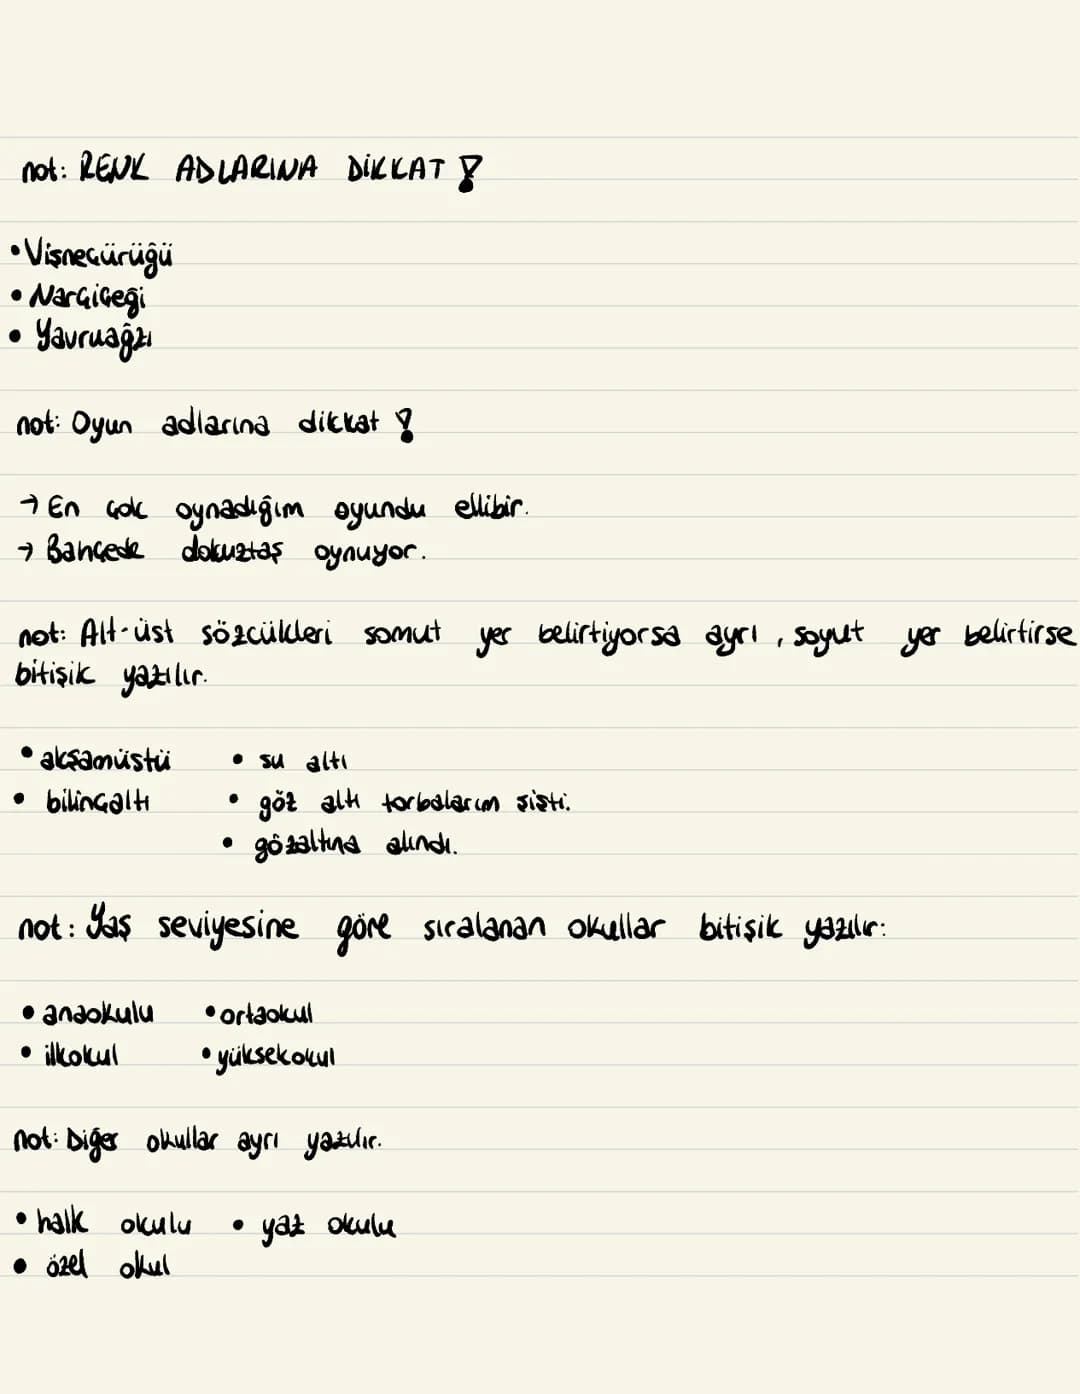 not: RENK ADLARINA DİKKAT !
• Vişneçürüğü
• Narçiçeği
• Yavruağzı
not: Oyun adlarına dikkat !
→ En çok oynadığım oyundu ellibir.
→ Bahçede dokuztaş oynuyor.
not: Alt-üst sözcükleri somut yer belirtiyorsa ayrı, soyut yer belirtirse
bitişik yazılır.
• akşamüstü • su altı
• bilinçaltı • göz altı torbalarım şişti.
• gözaltına alındı.
not: Yaş seviyesine göre sıralanan okullar bitişik yazılır:
• anaokulu • ortaokul
• ilkokul • yüksekokul
not: Diğer okullar ayrı yazılır.
• halk okulu • yaz okulu
• özel okul